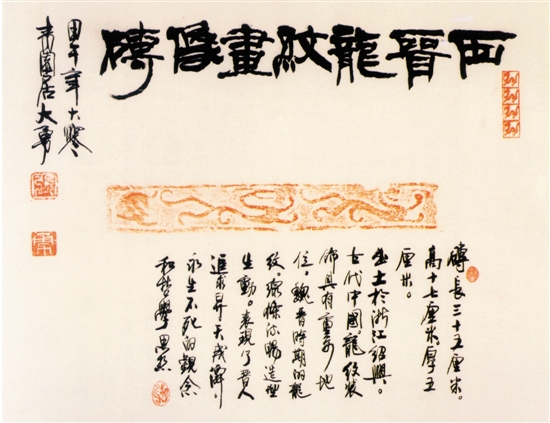 西晉龍紋畫像磚
磚長三十五厘米。
高十七厘米厚五
厘米。
出土於浙江紹興。
古代中國，龍紋裝
飾具有重要地
位。魏晉時期的龍
紋，線條流暢造型
生動。表現了人
追求昇天成
永生不死的觀念
和哲學思想
甲午年大寒
園居大勇